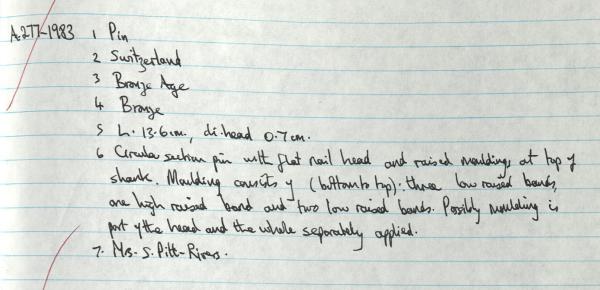 A.277-1983 1 Pin
2 Switzerland
3 Bronze Age
4 Bronze
5 L. 13.6cm., di. head 0.7cm.
6 Circular section pin with flat nail head and raised moulding at top of
shank. Moulding consists of (bottom to top): three low raised bands,
one high raised band and two low raised bands. Possibly moulding is
part of the head and the whole separately applied.
7. Mrs. S. Pitt-Rivers.